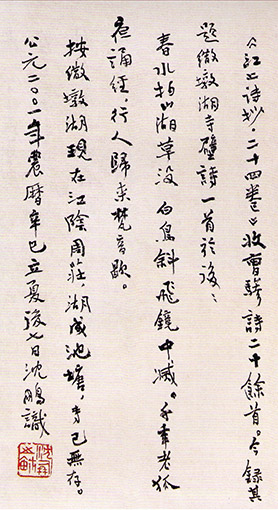 《江上诗抄·二十四卷》收曹驂詩二十餘首。今録其
題微墩湖寺壁詩一首於後：
春水拍山湖草没 白鳥斜飛鏡中滅。千年老狐
夜誦經，行人歸来梵音歇。
按微墩湖現在江陰周莊，湖成池塘，寺已無存。
公元二〇〇二年農曆辛巳立夏後七日沈鵬識